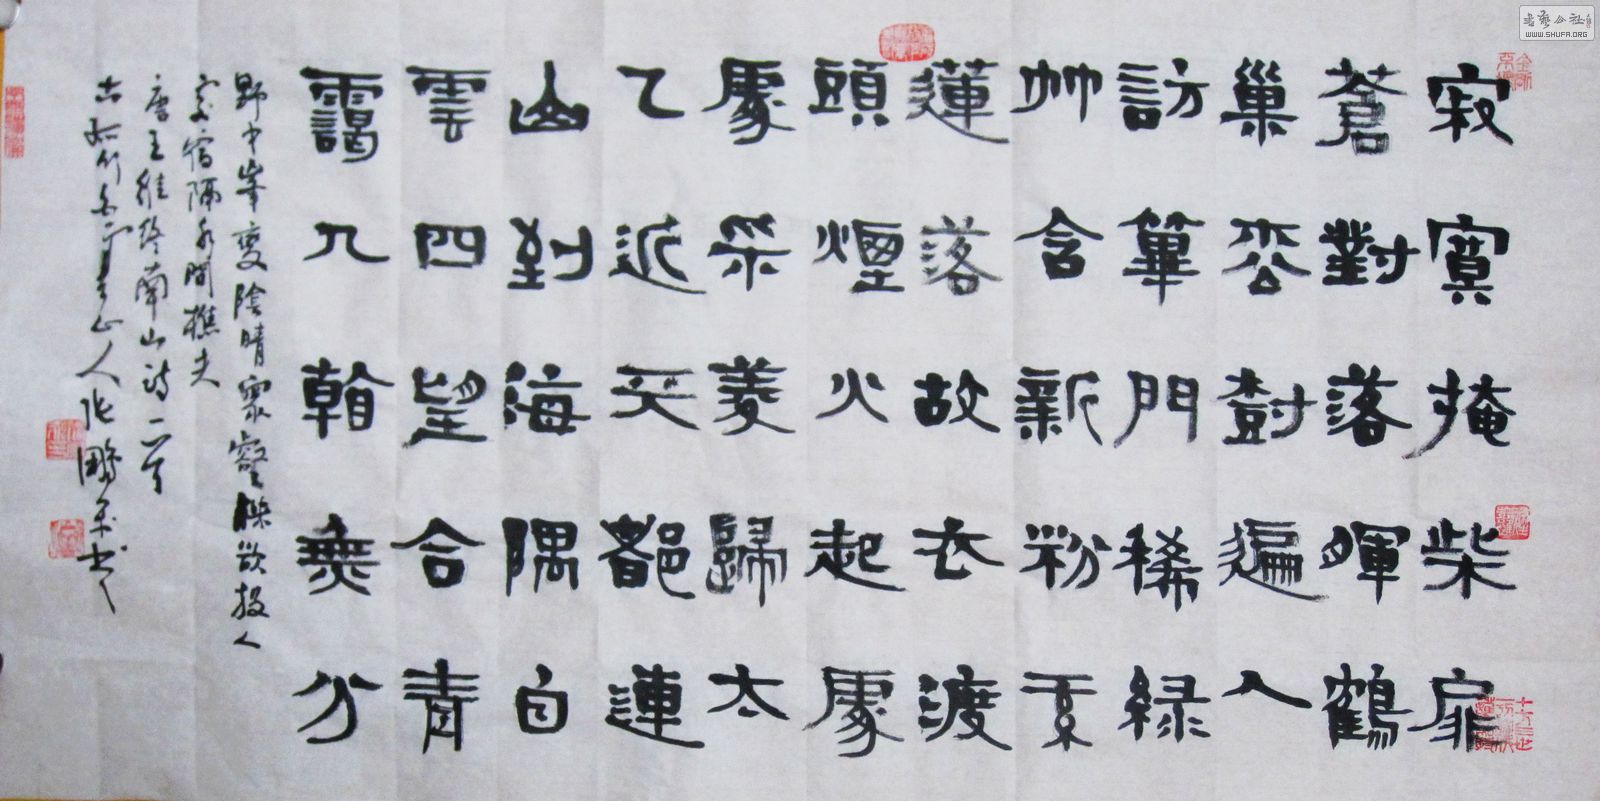 寂寞掩柴扉
蒼對落暉鶴
巢枩尌遍人
訪蓽門稀綠
竹含新粉紅
蓮落故衣渡
頭煙火起處
處采菱歸太
乙近天都連
山到海隅白
雲回望合青
靄入看無分
野中峯變陰晴眾壑殊欲投人
處宿隔水問樵夫
唐王維終南山詩二首
山人張鵬書
書藝公社
WWW.SHUFA.ORG